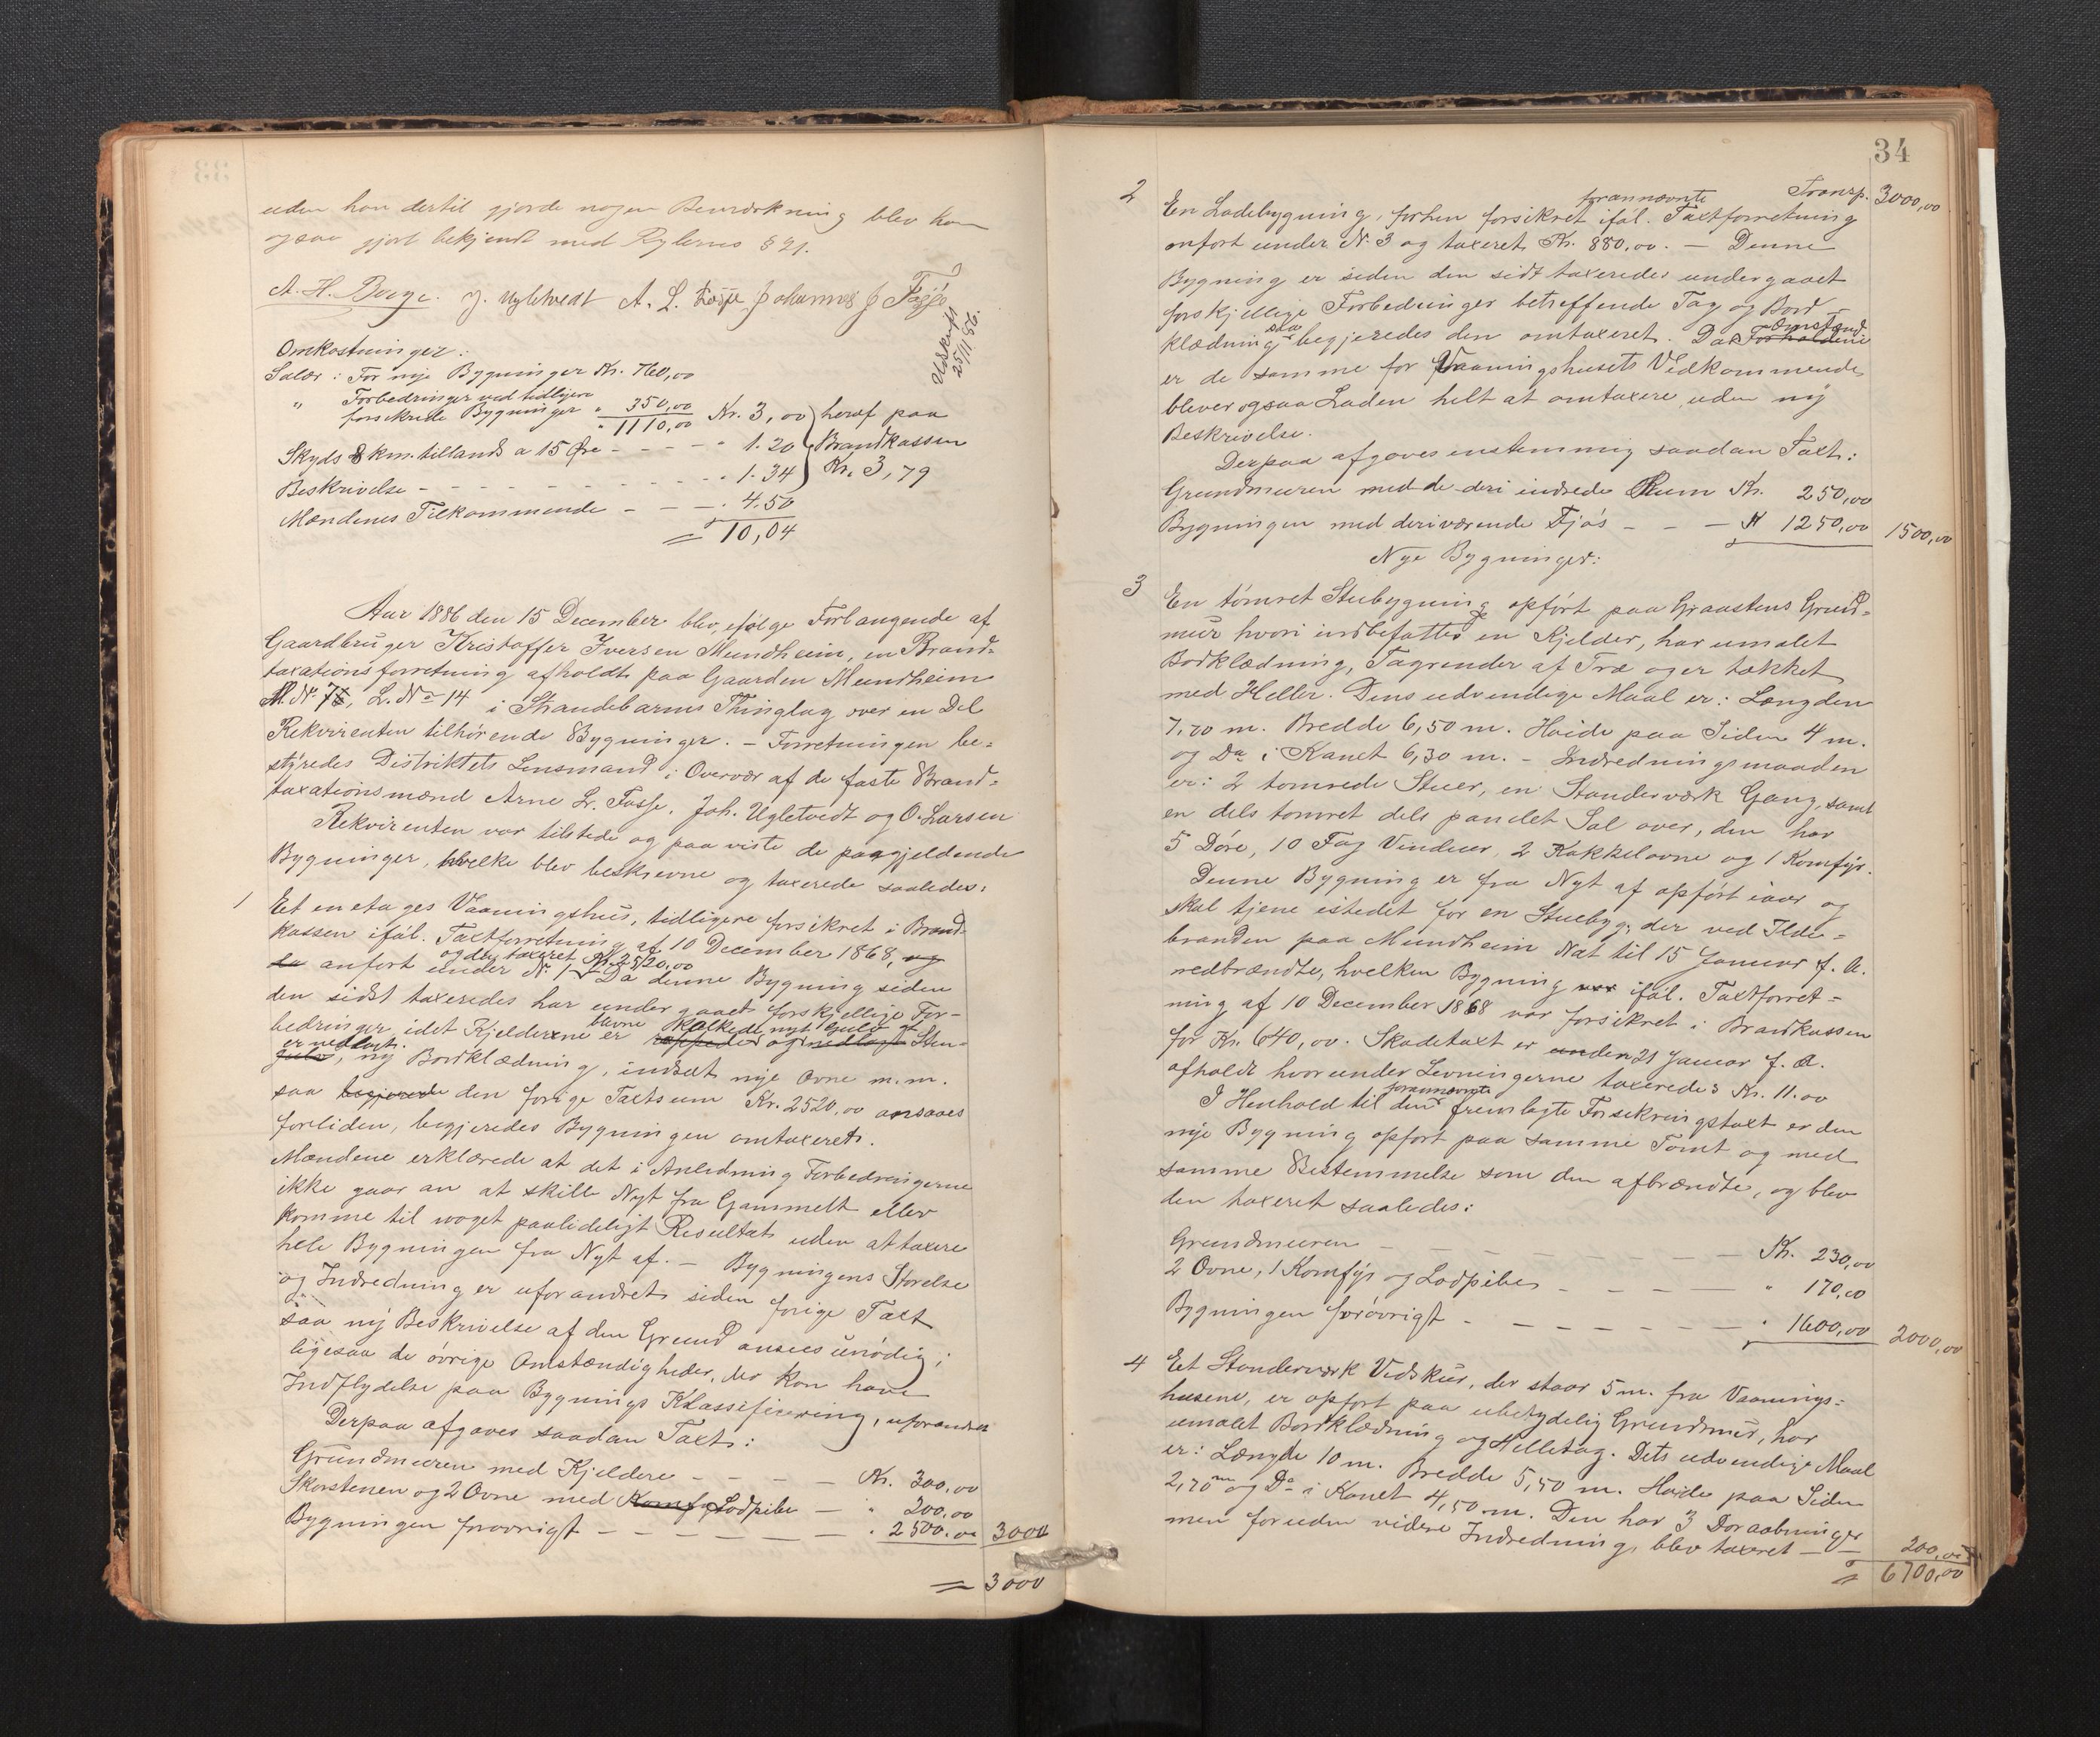 uden han dertil gjorde nogen Bemærkning blev han
ogsaa gjort bekjendt med Rylernes § 21.
A. H. Berge. J. Ugletvedt A. L. Fosse Johannes J Fosse
Udskrift
25/11 86.
Omkostninger:
Salær: For nye Bygninger Kr. 760,00
" Forbedringer ved tidligere
forsikrede Bygninger " 350,00
" 1110,00 Kr. 3,00 heraf paa
Skyds 8 km. tillands a 15 Øre - - - - " 1.20 Brandkassen
Beskrivelse - - - - - - - - - - " 1.34 Kr. 3,79
Mændenes Tilkommende - - - " 4.50
= 10,04
Aar 1886 den 15 December blev, ifølge Forlangende af
Gaardbruger Kristoffer Iversen Mundheim, en Brand-
taxationsforretning afholdt paa Gaarden Mundheim
M. No 7, L. No 14 i Strandebarms Thinglag over en Del
Rekvirenten tilhørende Bygninger. - Forretningen be-
styredes Distriktets Lensmand i Overvær af de faste Brand-
taxationsmænd Arne L. Fosse, Joh. Ugletvedt og O. Larsen
Rekvirenten var tilstede og paaviste de paagjeldende
Bygninger, hvilke blev beskrevne og taxerede saaledes:
1 Et en etages Vaaningshus, tidligere forsikret i Brand-
kassen iføl. Taxtforretning af 10 December 1868, og
og der taxeret Kr. 2520,00
anført under No 1. Da denne Bygning siden
den sidst taxeredes har undergaaet forskjellige For-
blevne kalkede, nyt Gulv af
bedringer, idet Kjelderne er og nedlagt Sten-
er nedlagt.
gulv, ny Bordklædning, indsat nye Ovne m.m.
saa begjerede den forige Taxtsum Kr. 2520,00 ansaaes
forliden, begjeredes Bygningen omtaxeret.
Mændene erklærede at det i Anledning Forbedringerne
ikke gaar an at skille Nyt fra Gammelt eller
komme til noget paalideligt Resultat uden at taxere
hele Bygningen fra Nyt af. - Bygningens Størelse
og Indredning er uforandret siden forige Taxt
saa ny Beskrivelse af den Grund ansees unødig;
ligesaa de øvrige Omstændigheder, der kan have
Indflydelse paa Bygnings Klassificering, uforandret
Derpaa afgaves saadan Taxt:
Grundmuren med Kjeldere - - - - Kr. 300,00
Skorstenen og 2 Ovne med Komfy Lodpibe - " 200,00
Bygningen forøvrigt - - - - - - " 2500,00 3000
= 3000
34
Transp. 3000,00
forannævnte
2 En Ladebygning, forhen forsikret iføl. Taxtforretning
anført under No. 3 og taxeret Kr. 880,00. - Denne
Bygning er siden den sidst taxeredes undergaaet
forskjellige Forbedringer betreffende Tag og Bord-
saa Omstænd
klædning begjeredes den omtaxeret. Da Forholdene
er de samme for Vaaningshusets Vedkommende
blever ogsaa Laden helt at omtaxere uden ny
Beskrivelse.
Derpaa afgaves enstemmig saadan Taxt:
Grundmuren med de deri indrede Rum Kr. 250,00
Bygningen med deriværende Fjøs - - - " 1250,00 1500,00
Nye Bygninger:
3 En tømret Stuebygning opført paa Graastens Grund-
mur hvori indbefattes en Kjelder, har umalet
Bordklædning, Tagrender af Træ og er tækket
med Heller. Dens udvendige Maal er: Længden
7,70 m. Bredde 6,50 m. Høide paa Siden 4 m.
og Do i Kanet 6,30 m. - Indredningsmaaden
er: 2 tømrede Stuer, en Standerværk Gang, samt
en dels tømret dels panelet Sal over, den har
5 Døre, 10 Fag Vinduer, 2 Kakkelovne og 1 Komfyr.
Denne Bygning er fra Nyt af opført iaar og
skal tjene istedet for en Stuebyg. der ved Ilde-
branden paa Mundheim Nat til 15 Januar f. A.
nedbrændte, hvilken Bygning iføl. Taxtforret-
ning af 10 December 1868 var forsikret i Brandkassen
for Kr. 640,00. Skadetaxt er under 21 Januar f. A.
afholdt hvorunder Levningerne taxeredes Kr. 11.00
forannævnte
I Henhold til den fremlagte Forsikringstaxt er den
nye Bygning opført paa samme Tomt og med
samme Bestemmelse som den afbrændte, og blev
den taxeret saaledes:
Grundmuren - - - - - - - - - Kr. 230,00
2 Ovne, 1 Komfyr og Lodpibe - - - - " 170,00
Bygningen forøvrigt - - - - - - - " 1600,00 2000,00
4 Et Standerværk Vedskur, der staar 5 m. fra Vaanings-
husene, er opført paa ubetydelig Grundmur, har
umalet Bordklædning og Helletag. Dets udvendige Maal
er: Længde 10 m. Bredde 5,50 m. Høide paa Siden
2,70 m og Do i Kanet 4,50 m. Den har 3 Døraabninger
men foruden videre Indredning, blev taxeret - - 200,00
= 6700,00